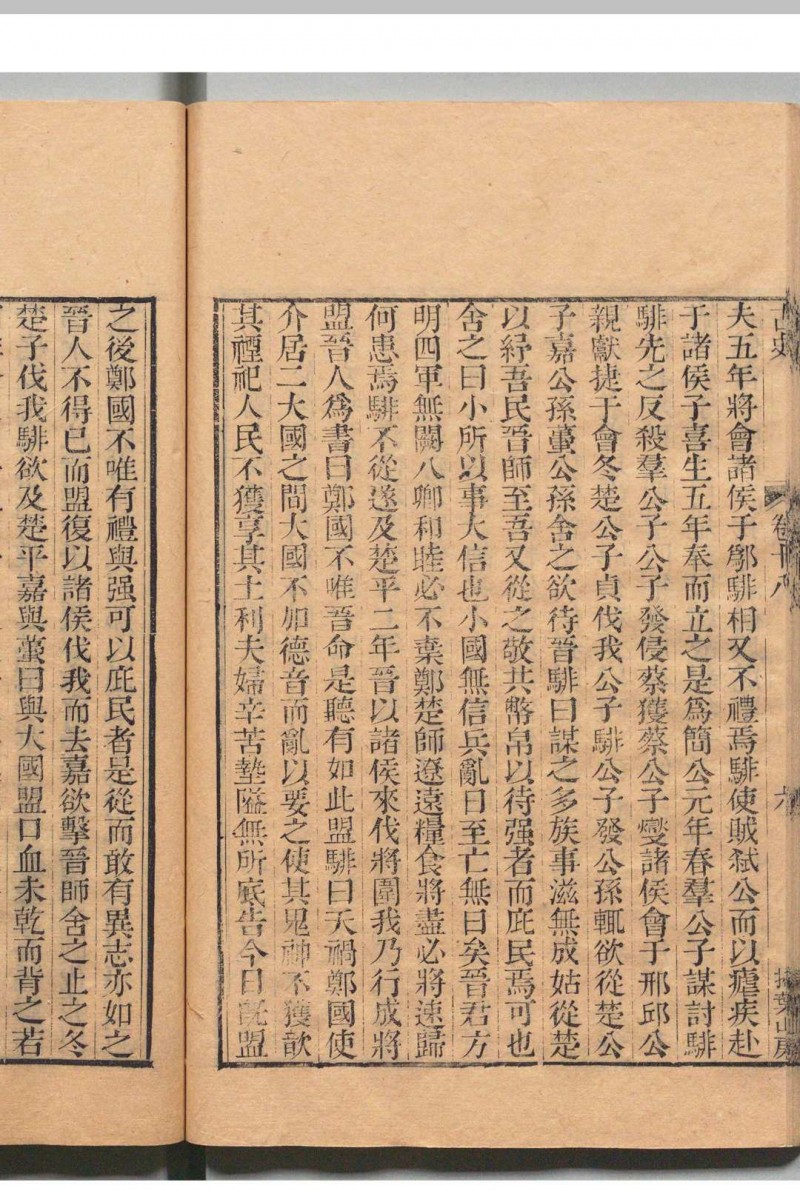 古史
卷卅八
六
掃葉山房
夫五年將會諸侯于鄬騑相又不禮焉騑使賊弑公而以瘧疾赴
于諸侯子喜生五年奉而立之是爲簡公元年春羣公子謀討騑
騑先之反殺羣公子公子發侵蔡獲蔡公子燮諸侯會于邢邱公
親獻捷于會冬楚公子貞伐我公子騑公子發公孫輒欲從楚公
子嘉公孫蠆公孫舍之欲待晉騑曰謀之多族事滋無成姑從楚
以紓吾民晉師至吾又從之敬共幣帛以待强者而庇民焉可也
舍之曰小所以事大信也小國無信兵亂日至亡無日矣晉君方
明四軍無闕八卿和睦必不棄鄭楚師遼遠糧食將盡必將速歸
何患焉騑不從遂及楚平二年晉以諸侯來伐將圍我乃行成將
盟晉人爲書曰鄭國不唯晉命是聽有如此盟騑曰天禍鄭國使
介居二大國之間大國不加德音而亂以要之使其鬼神不獲歆
其禋祀人民不獲享其土利夫婦辛苦墊隘無所底告今日既盟
之後鄭國不唯有禮與强可以庇民者是從而敢有異志亦如之
晉人不得已而盟復以諸侯伐我而去嘉欲擊晉師舍之止之冬
楚子伐我騑欲及楚平嘉與蠆曰與大國盟口血未乾而背之若